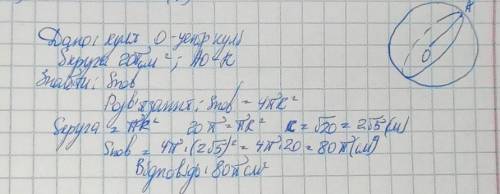 Дано: куля О-центр кулі
Sкруга 20π см²; AO=R
Знайти: Sпов
Розв'язання: Sпов = 4πR²
Sкруга = πR² 20π = πR² R = √20 = 2√5 (см)
Sпов = 4π · (2√5)² = 4π · 20 = 80π (см²)
Відповідь: 80π см²
A
O